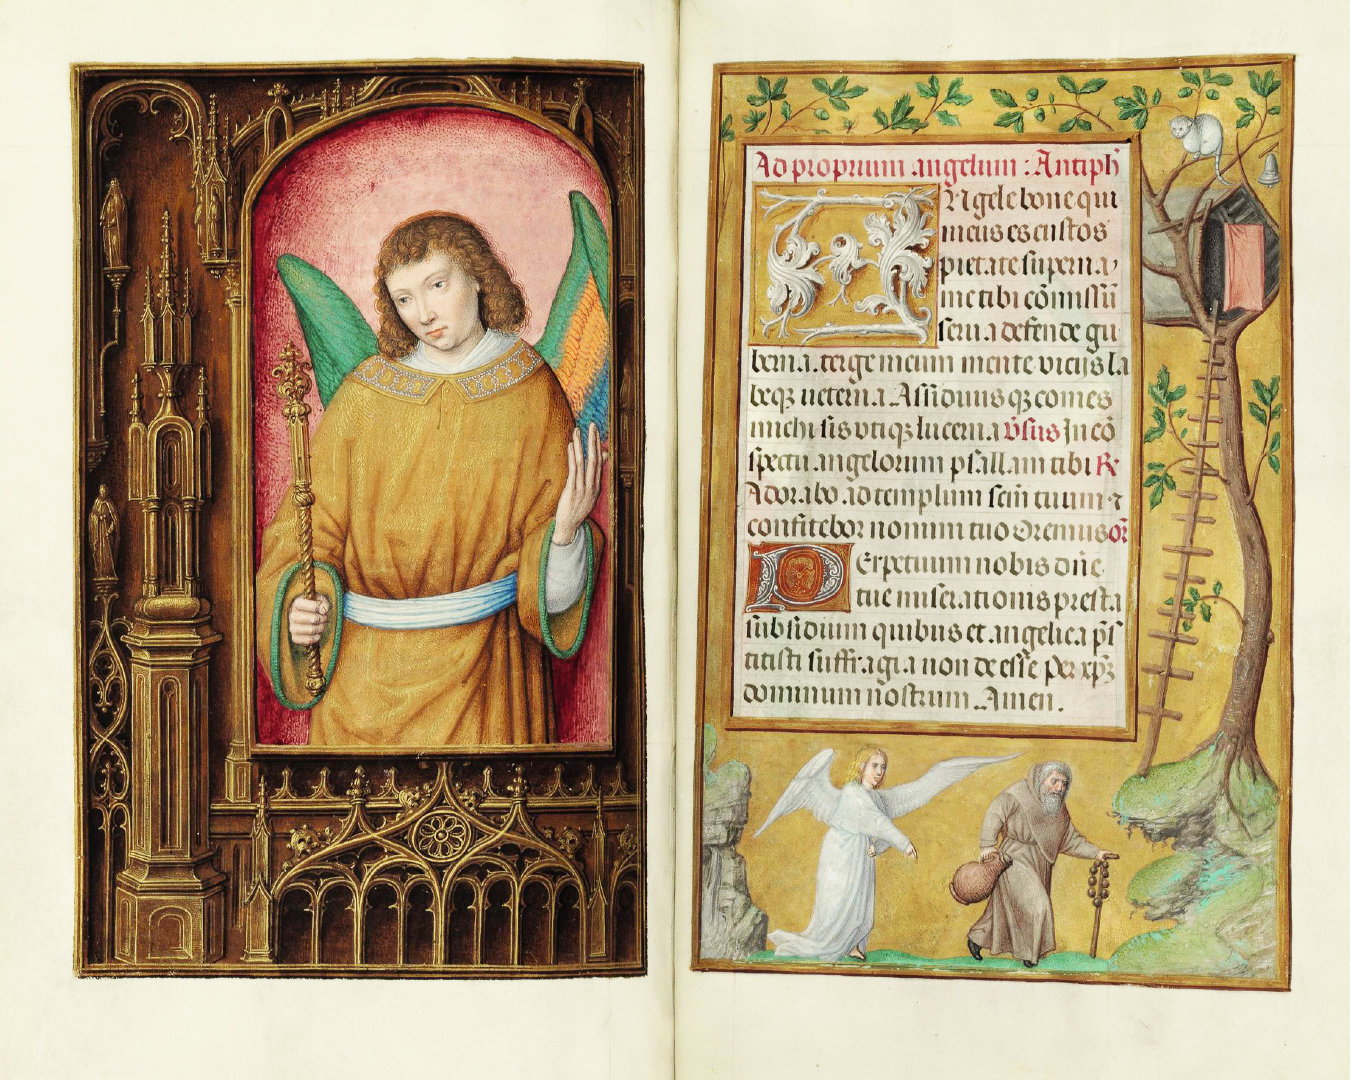 Ad proprium angelum : Antiph̄
Angele bone qui
meus es custos
pietate superna ,
me tibi cōmissū
serua defende gu
berna . terge meum mente vicijs la
beqꝫ veterna Assiduus qꝫ comes
michi sis vtiqꝫ lucerna v̄sus In cō
spectu angelorum psallam tibi ℟
Adorabo ad templum scm̄ tuum ⁊
confitebor nomini tuo Oremus or̄
Perpetuum nobis dn̄e
tue miserationis presta
subsidium quibus et angelica p̄s
titisti suffragia non deesse per xp̄ꝫ
dominum nostrum . Amen .